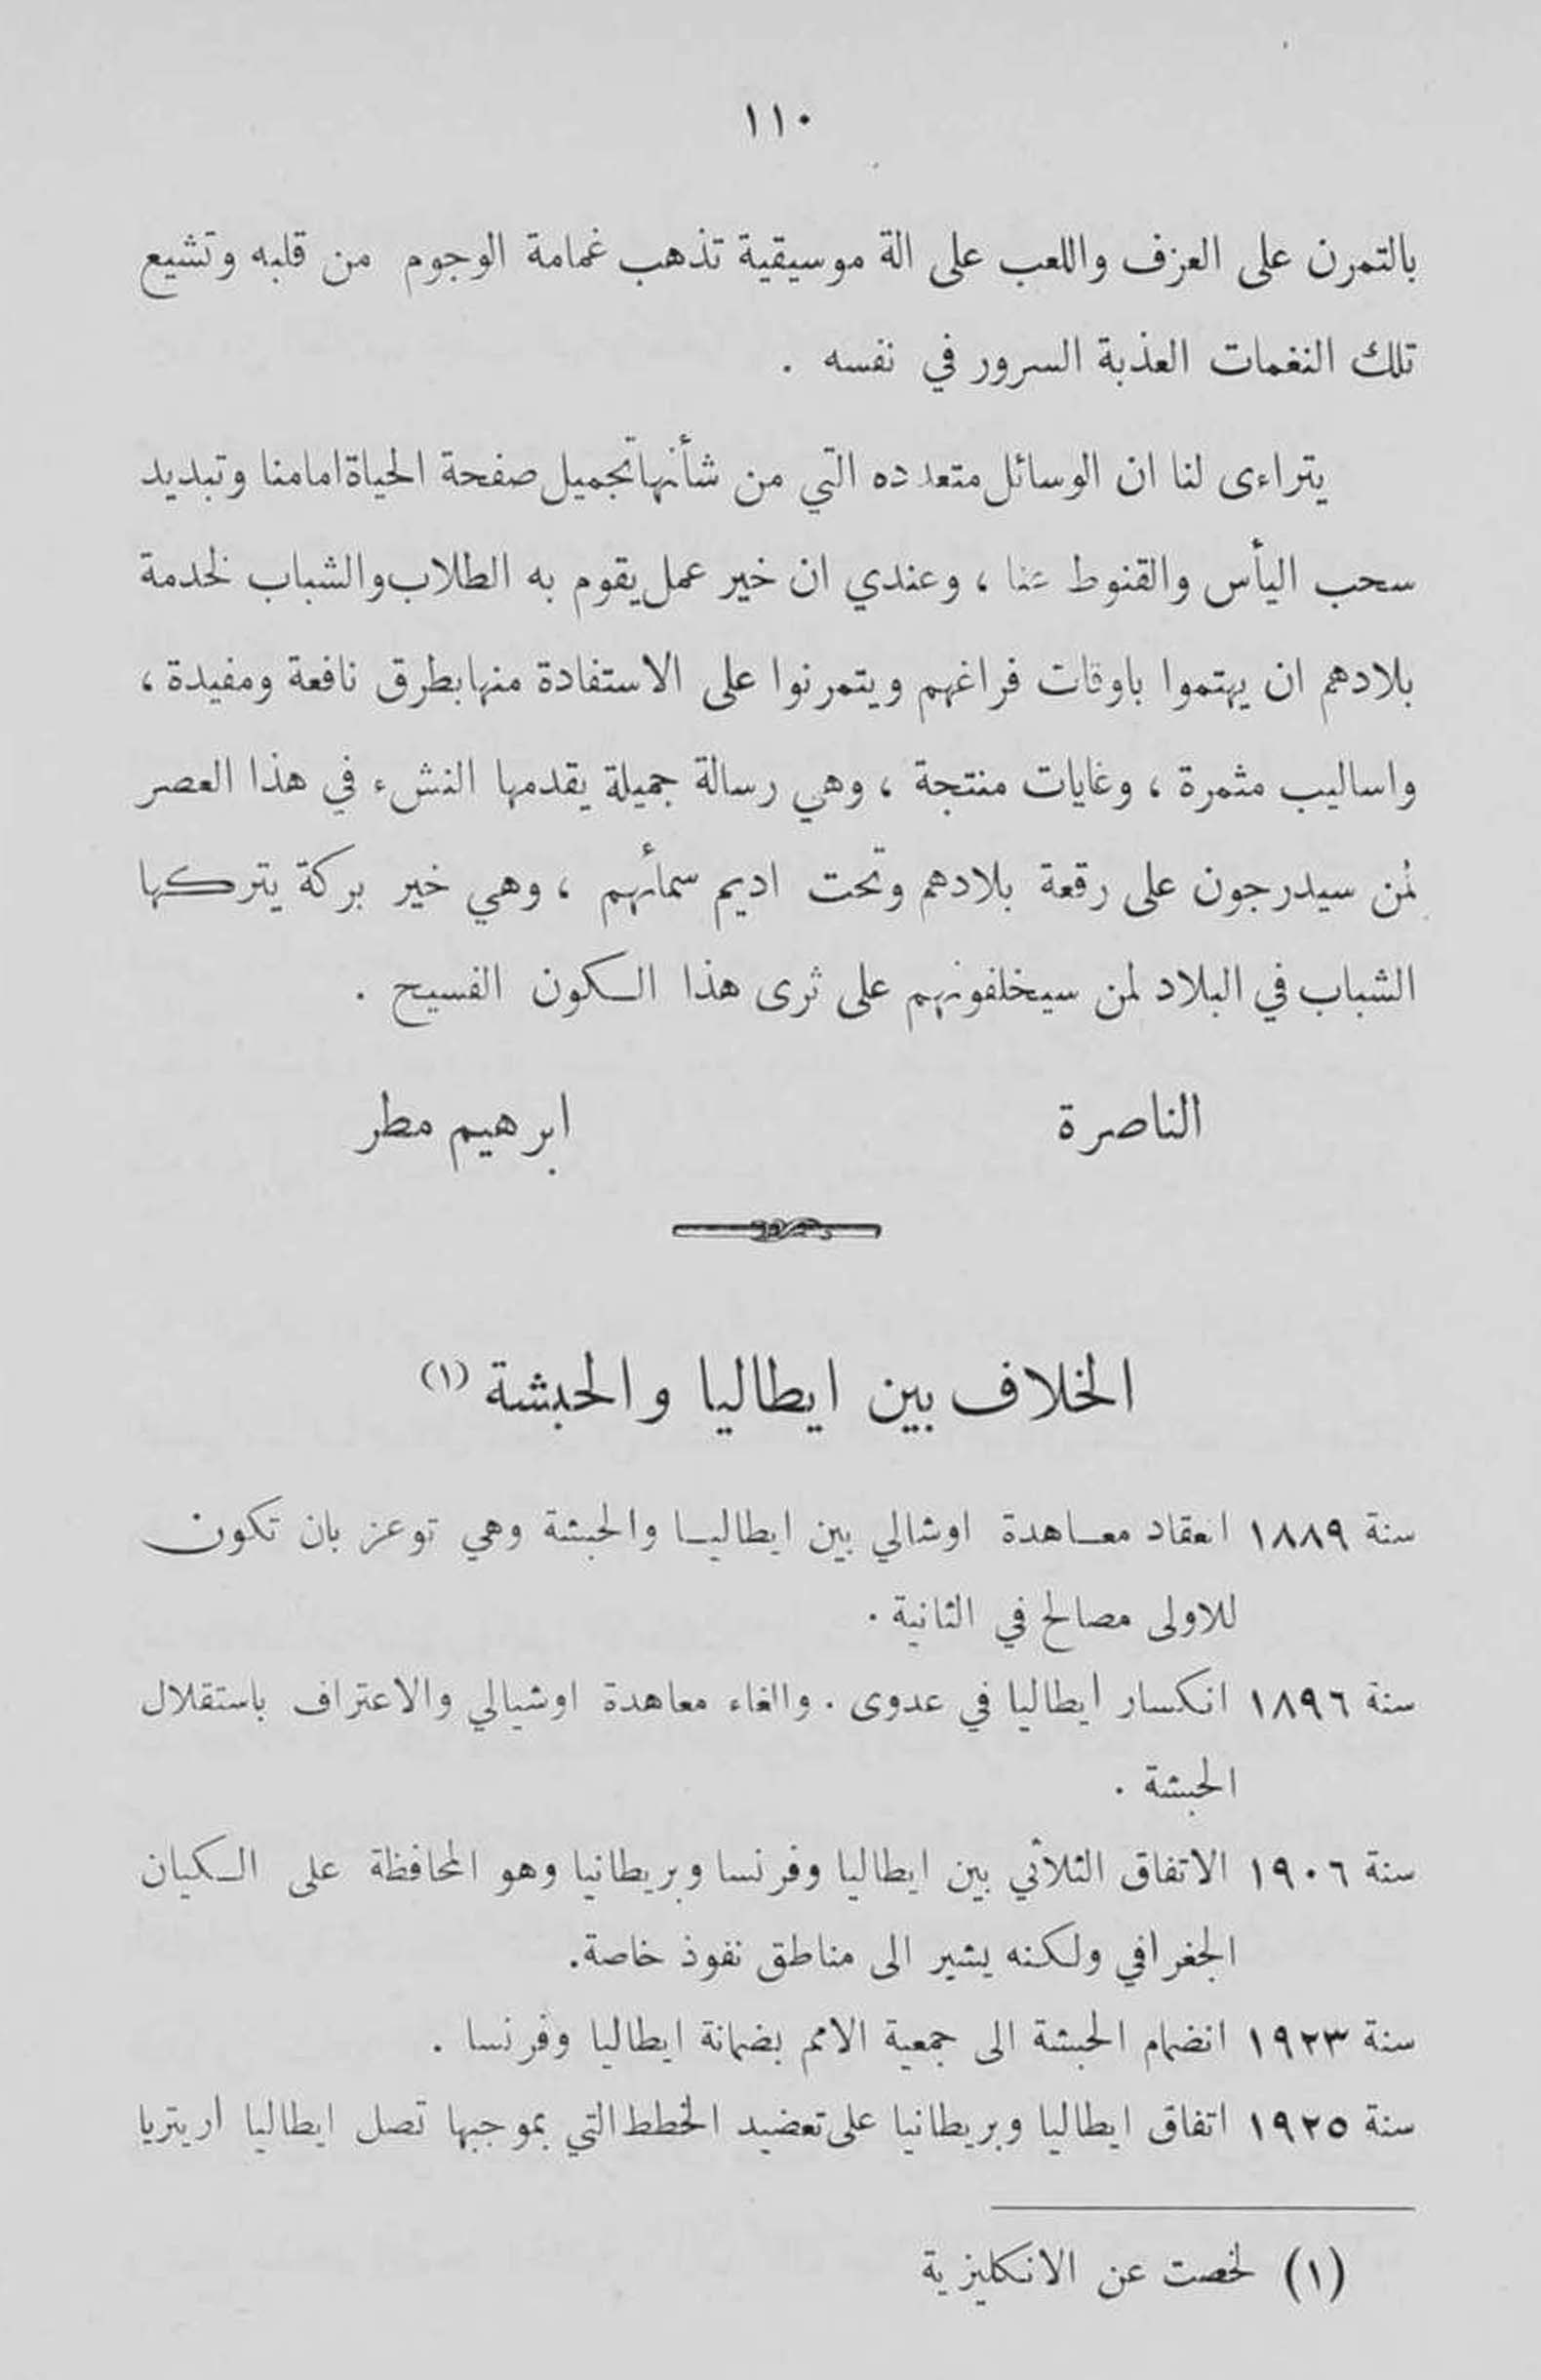 ١١٠
بالتمرن على العزف واللعب على الة موسيقية تذهب غمامة الوجوم من قلبه وتشيع
تلك النغمات العذبة السرور في نفسه .
يتراءى لنا ان الوسائل متعدده التي من شأنها تجميل صفحة الحياة امامنا وتبديد
سحب اليأس والقنوط عنا ، وعندي ان خير عمل يقوم به الطلاب والشباب لخدمة
بلادهم ان يهتموا باوقات فراغهم ويتمرنوا على الاستفادة منها بطرق نافعة ومفيدة ،
واساليب مثمرة ، وغايات منتجة ، وهي رسالة جميلة يقدمها النشء في هذا العصر
لمن سيدرجون على رقعة بلادهم وتحت اديم سمأئهم ، وهي خير بركة يتركها
الشباب في البلاد لمن سيخلفونهم على ثرى هذا الكون الفسيح .
الناصرة ابرهيم مطر
الخلاف بين ايطاليا والحبشة (١)
سنة ١٨٨٩ انعقاد معاهدة اوشالي بين ايطاليا والحبشة وهي توعز بان تكون
للاولى مصالح في الثانية .
سنة ١٨٩٦ انكسار ايطاليا في عدوى . والغاء معاهدة اوشيالي والاعتراف باستقلال
الحبشة .
سنة ١٩٠٦ الاتفاق الثلاثي بين ايطاليا وفرنسا وبريطانيا وهو المحافظة على الكيان
الجغرافي ولكنه يشير الى مناطق نفوذ خاصة.
سنة ١٩٢٣ انضمام الحبشة الى جمعية الامم بضمانة ايطاليا وفرنسا .
سنة ١٩٢٥ اتفاق ايطاليا وبريطانيا على تعضيد الخطط التي بموجبها تصل ايطاليا اريتريا
(١) لخصت عن الانكليزية